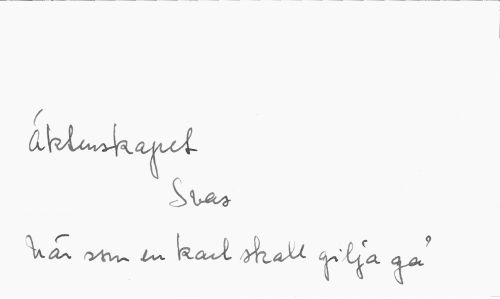 Äktenskapet
Svas
När som en karl skall gilja gå